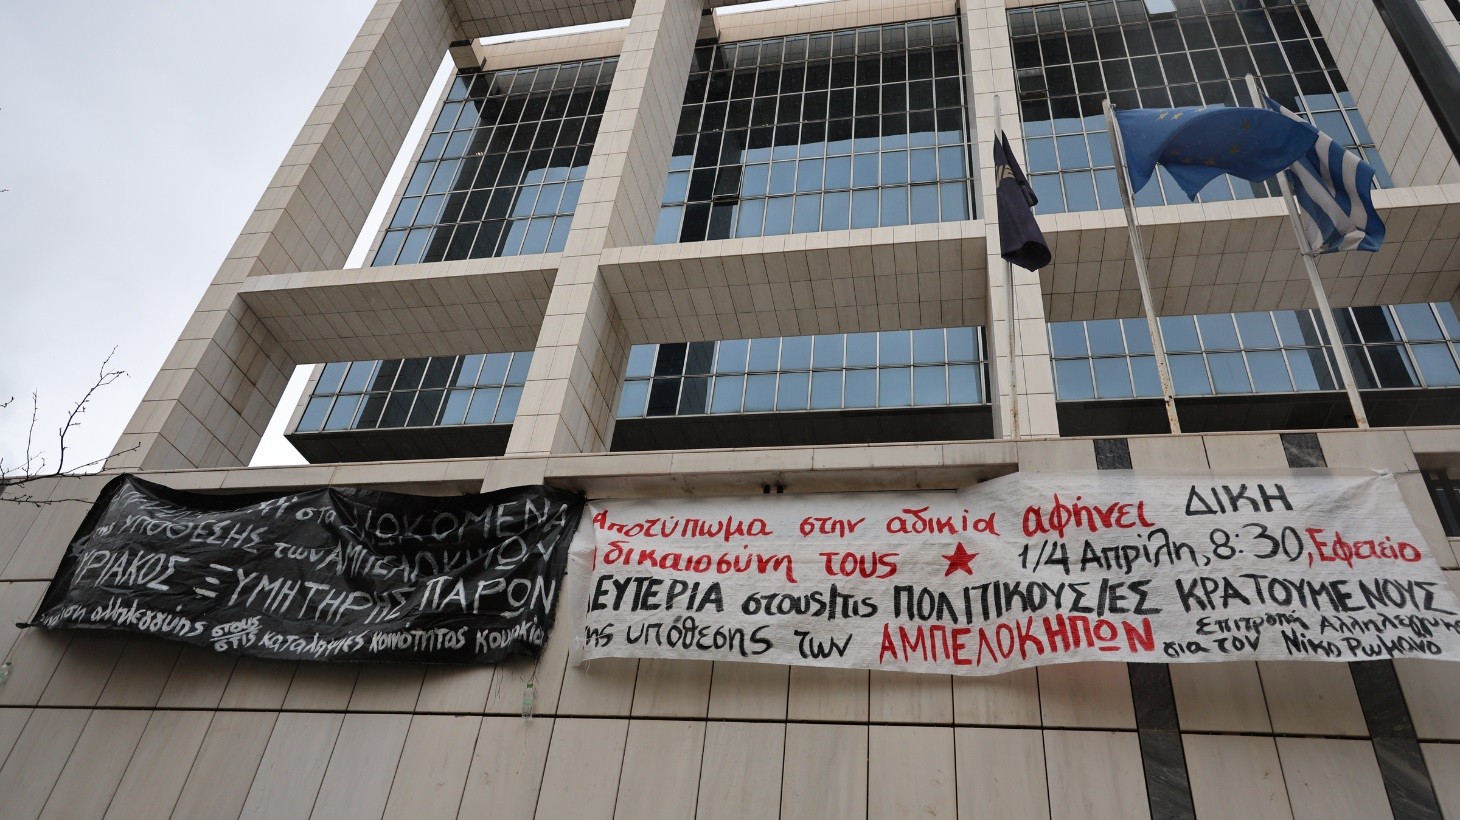 στα ΔΙΩΚΟΜΕΝΑ
της ΥΠΟΘΕΣΗΣ των ΑΜΠΕΛΟΚΗΠΩΝ
ΥΡΙΑΚΟΣ ΞΥΜΗΤΗΡΗΣ ΠΑΡΩΝ
αλληλεγγύης στους στις καταληψίες κοινότητας
Αποτύπωμα στην αδικία αφήνει ΔΙΚΗ
δικαιοσύνη τους ★ 1/4 Απρίλη, 8:30, Εφετείο
ΛΕΥΤΕΡΙΑ στους/τις ΠΟΛΙΤΙΚΟΥΣ/ΕΣ ΚΡΑΤΟΥΜΕΝΟΥΣ
της υπόθεσης των ΑΜΠΕΛΟΚΗΠΩΝ
Επιτροπή Αλληλεγγύης
για τον Νίκο Ρωμανο